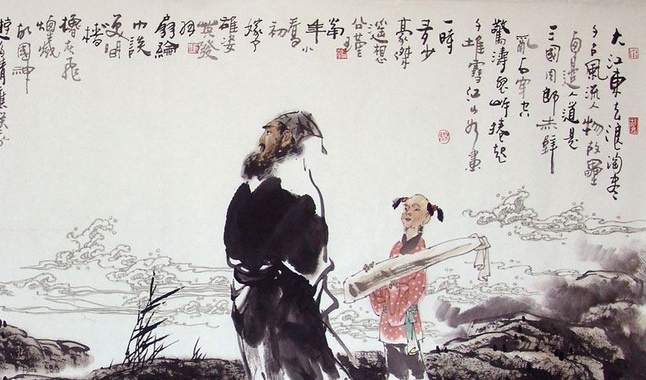 大江東去浪淘盡
千古風流人物故壘
西邊人道是
三國周郎赤壁
亂石穿空
驚濤拍岸捲起
千堆雪江山如畫
一時
多少
豪傑
遙想
公瑾
當
年小
喬
初
嫁了
雄姿
英發
羽
扇綸
巾談
笑間
檣
櫓灰飛
煙滅
故國神